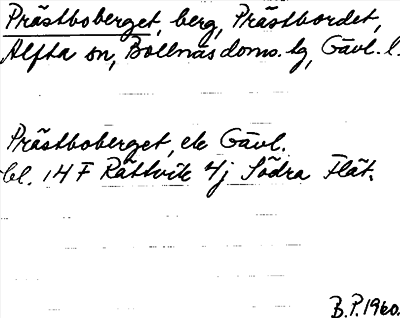 Prästboberget, berg, Prästbordet,
Alfta sn, Bollnäs doms. tg, Gävl. l.
Prästboberget, ek Gävl.
bl. 14 F Rättvik 4j Södra Flät.
B.P. 1960.